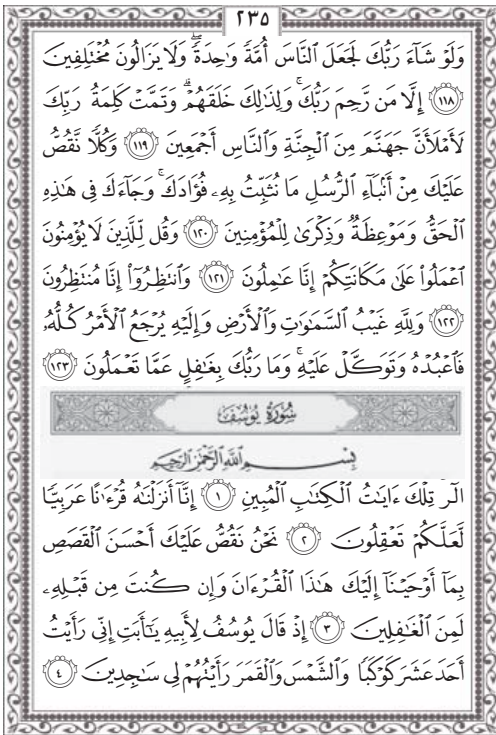 ٢٣٥
وَلَوْ شَآءَ رَبُّكَ لَجَعَلَ ٱلنَّاسَ أُمَّةً وَٰحِدَةً ۖ وَلَا يَزَالُونَ مُخْتَلِفِينَ
﴿١١٨﴾ إِلَّا مَن رَّحِمَ رَبُّكَ ۚ وَلِذَٰلِكَ خَلَقَهُمْ ۗ وَتَمَّتْ كَلِمَةُ رَبِّكَ
لَأَمْلَأَنَّ جَهَنَّمَ مِنَ ٱلْجِنَّةِ وَٱلنَّاسِ أَجْمَعِينَ ﴿١١٩﴾ وَكُلًّا نَّقُصُّ
عَلَيْكَ مِنْ أَنۢبَآءِ ٱلرُّسُلِ مَا نُثَبِّتُ بِهِۦ فُؤَادَكَ ۚ وَجَآءَكَ فِى هَٰذِهِ
ٱلْحَقُّ وَمَوْعِظَةٌ وَذِكْرَىٰ لِلْمُؤْمِنِينَ ﴿١٢٠﴾ وَقُل لِّلَّذِينَ لَا يُؤْمِنُونَ
ٱعْمَلُوا۟ عَلَىٰ مَكَانَتِكُمْ إِنَّا عَٰمِلُونَ ﴿١٢١﴾ وَٱنتَظِرُوٓا۟ إِنَّا مُنتَظِرُونَ
﴿١٢٢﴾ وَلِلَّهِ غَيْبُ ٱلسَّمَٰوَٰتِ وَٱلْأَرْضِ وَإِلَيْهِ يُرْجَعُ ٱلْأَمْرُ كُلُّهُۥ
فَٱعْبُدْهُ وَتَوَكَّلْ عَلَيْهِ ۚ وَمَا رَبُّكَ بِغَٰفِلٍ عَمَّا تَعْمَلُونَ ﴿١٢٣﴾
سُورَةُ يُوسُفَ
بِسْمِ ٱللَّهِ ٱلرَّحْمَٰنِ ٱلرَّحِيمِ
الٓر ۚ تِلْكَ ءَايَٰتُ ٱلْكِتَٰبِ ٱلْمُبِينِ ﴿١﴾ إِنَّآ أَنزَلْنَٰهُ قُرْءَٰنًا عَرَبِيًّا
لَّعَلَّكُمْ تَعْقِلُونَ ﴿٢﴾ نَحْنُ نَقُصُّ عَلَيْكَ أَحْسَنَ ٱلْقَصَصِ
بِمَآ أَوْحَيْنَآ إِلَيْكَ هَٰذَا ٱلْقُرْءَانَ وَإِن كُنتَ مِن قَبْلِهِۦ
لَمِنَ ٱلْغَٰفِلِينَ ﴿٣﴾ إِذْ قَالَ يُوسُفُ لِأَبِيهِ يَٰٓأَبَتِ إِنِّى رَأَيْتُ
أَحَدَ عَشَرَ كَوْكَبًا وَٱلشَّمْسَ وَٱلْقَمَرَ رَأَيْتُهُمْ لِى سَٰجِدِينَ ﴿٤﴾